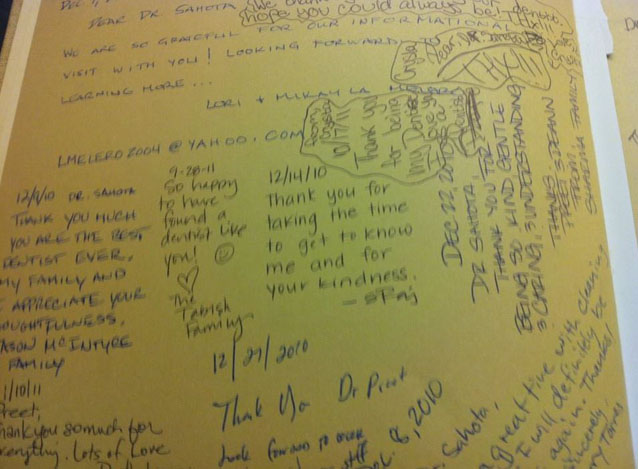 DEAR DR. SAHOTA,
WE ARE SO GRATEFUL FOR OUR INFORMATIONAL
VISIT WITH YOU! LOOKING FORWARD
LEARNING MORE...
LORI + MIKAYLA
LMELERO2004@YAHOO.COM
hope you could always be
THX!!!
from,
Crystal
10/17/11
Thank you
for being
my Dentist
I love you
DEC 22, 2010
DR SAHOTA,
THANK YOU FOR
BEING SO KIND, GENTLE
& CARING, & UNDERSTANDING
THANKS
PREET
FROM,
FAMILY
12/9/10 DR. SAHOTA
THANK YOU MUCH
YOU ARE THE BEST
DENTIST EVER.
MY FAMILY AND
I APPRECIATE YOUR
THOUGHTFULNESS.
JASON MCINTYRE
FAMILY
9-28-11
So happy
to have
found a
dentist like
you!
The
Tabish
Family
12/14/10
Thank you for
taking the time
to get to know
me and for
your kindness.
12/27/2010
Thank You Dr Preet
look forward to
staff
1/10/11
Preet,
Thank you so much for
everything. Lots of Love
8, 2010
Sahota,
great time with cleaning
I will definitely be
again. Thanks!
Sincerely,
Torres